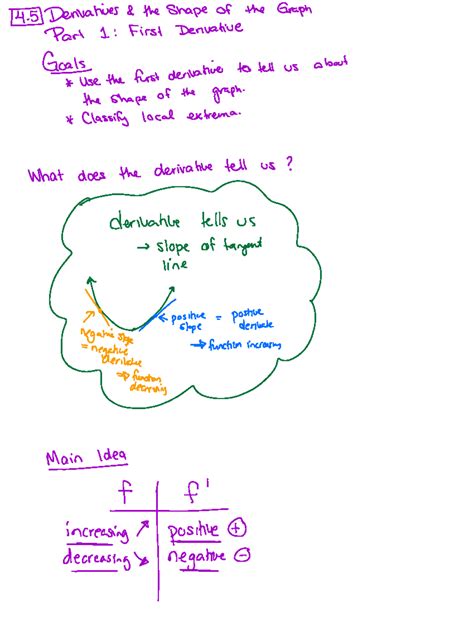 4.5 Derivatives & the Shape of the Graph
Part 1: First Derivative
Goals
* Use the first derivative to tell us about
the shape of the graph.
* Classify local extrema.
What does the derivative tell us?
derivative tells us
→ slope of tangent
line
negative slope
= negative
derivative
⇒ function
decreasing
← positive slope = positive derivate
⇒ function increasing
Main Idea
f | f'
increasing ↗ | positive ⊕
decreasing ↘ | negative ⊖